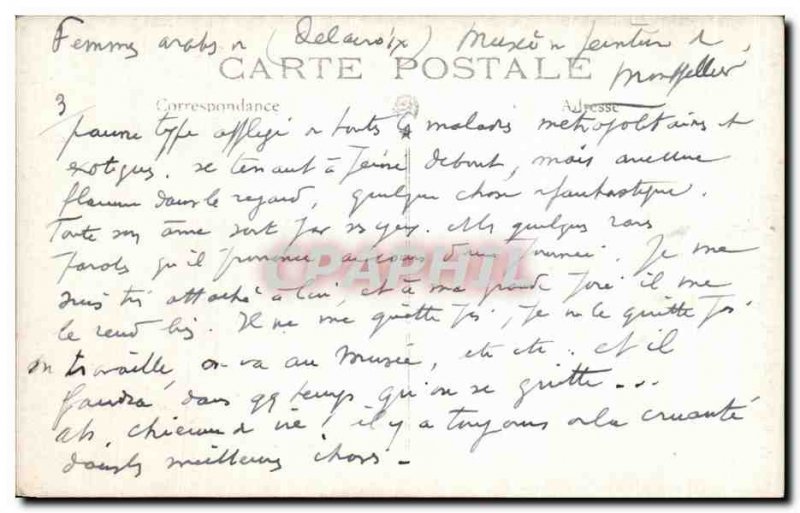 Femmes arabes (Delacroix) Musée de Peinture de
Montpellier
CARTE POSTALE
Correspondance
Adresse
3
pauvre type affligé de toutes les maladies métropolitaines et
exotiques. se tenant à peine debout, mais avec une
flamme dans le regard, quelque chose de fantastique.
Toute son âme sort par ses yeux. Et les quelques rares
paroles qu'il prononce au cours d'une journée. Je me
suis très attaché à lui, et à ma grande joie il me
le rend bien. Il ne me quitte pas, je ne le quitte pas.
on travaille, on va au Musée, etc etc.. et il
faudra, dans qq temps qu'on se quitte...
ah, chienne de vie! il y a toujours de la cruauté
dans les meilleures choses.
CPAPHIL